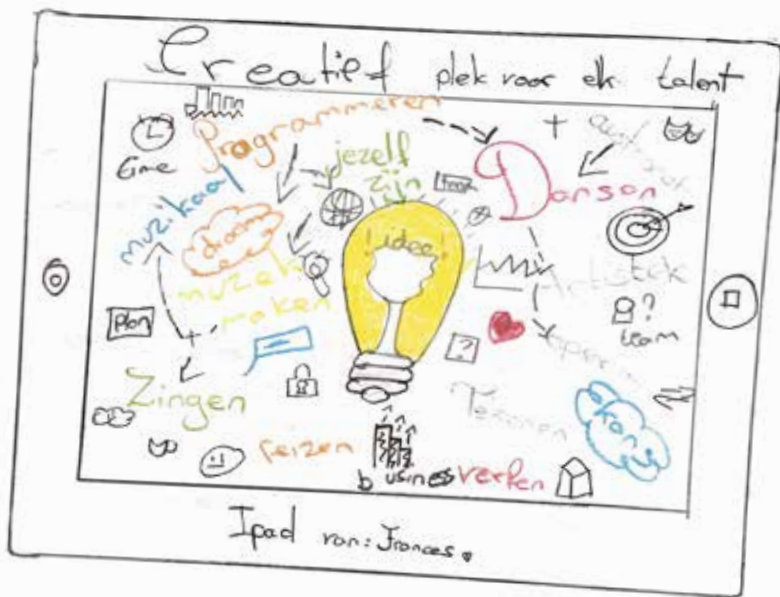 Creatief plek voor elk talent
Programmeren
time
jezelf
zijn
Dansen
muzikaal
droom
! idee !
muziek
maken
Artistiek
plan
team
?
?
Zingen
Tekenen
kans
reizen
business
verfen
Ipad van: Frances.